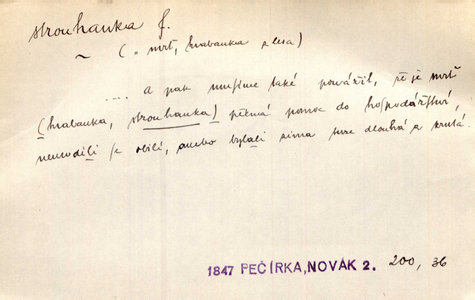 strouhanka f.
~ (= mrť, hrabanka z lesa)
.... a pak musíme také povážit, že je mrť
(hrabanka, strouhanka) pěkná pomoc do hospodářství,
neurodili se obilí, anebo bylali zima tuze dlouhá a krutá.
1847 PEČÍRKA, NOVÁK 2. 200, 36